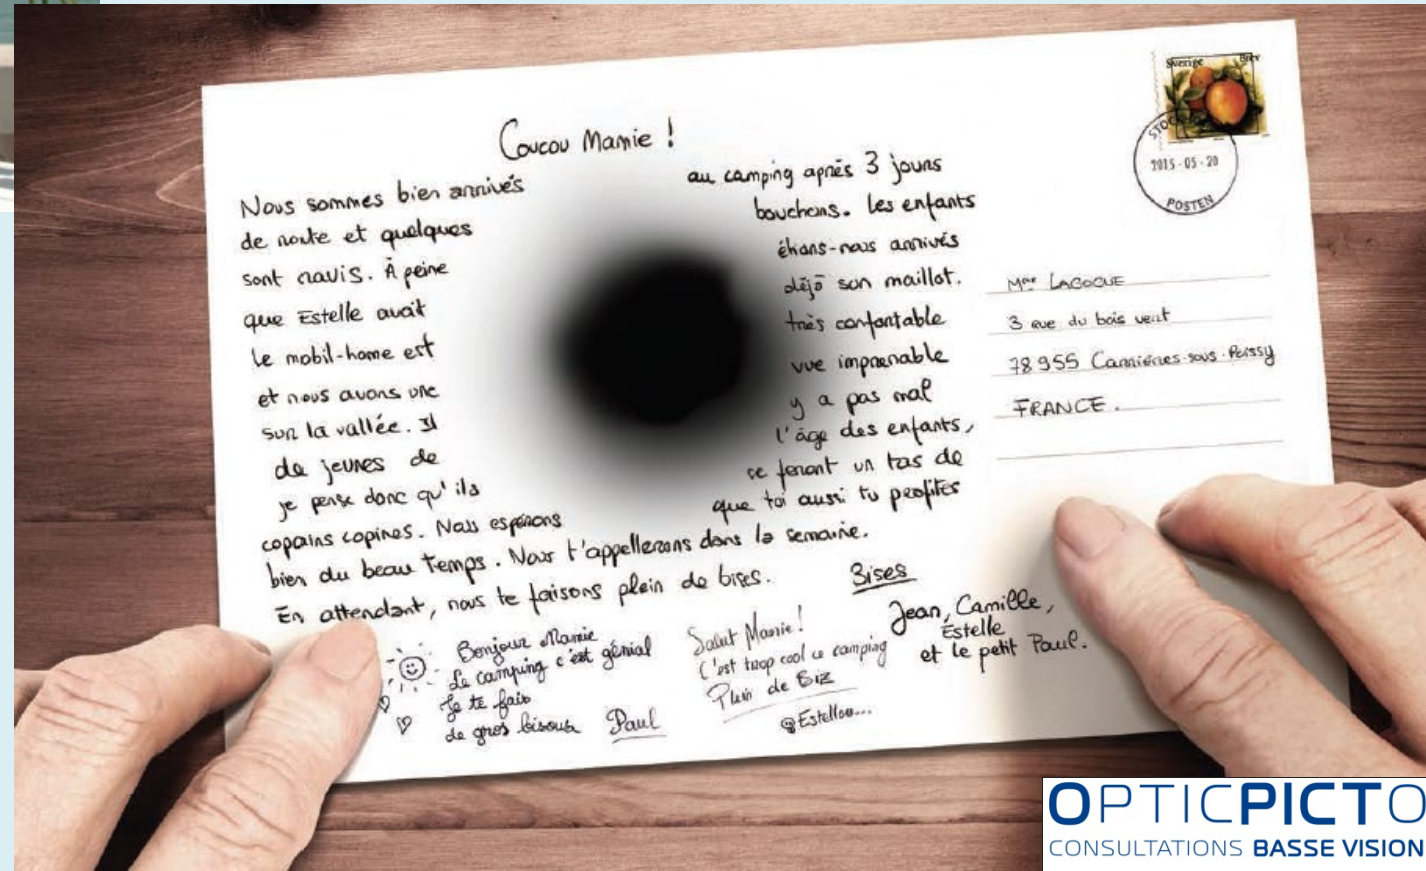 Coucou Mamie !
Nous sommes bien arrivés au camping après 3 jours
de route et quelques bouchons. Les enfants
sont ravis. À peine étions-nous arrivés
que Estelle avait déjà son maillot.
Le mobil-home est très confortable
et nous avons une vue imprenable
sur la vallée. Il y a pas mal
de jeunes de l'âge des enfants,
je pense donc qu'ils se feront un tas de
copains copines. Nous espérons que toi aussi tu profites
bien du beau temps. Nous t'appellerons dans la semaine.
En attendant, nous te faisons plein de bises.
Bises
Jean, Camille,
Estelle
et le petit Paul.
Bonjour Mamie
Le camping c'est génial
Je te fais
de gros bisous Paul
Salut Mamie !
C'est trop cool ce camping
Plein de Biz
@Estellou...
Sverige Brev
2015-05-20
POSTEN
Mme LAGOGUE
3 rue du bois vert
78955 Carrières-sous-Poissy
FRANCE.
OPTICPICTO
CONSULTATIONS BASSE VISION